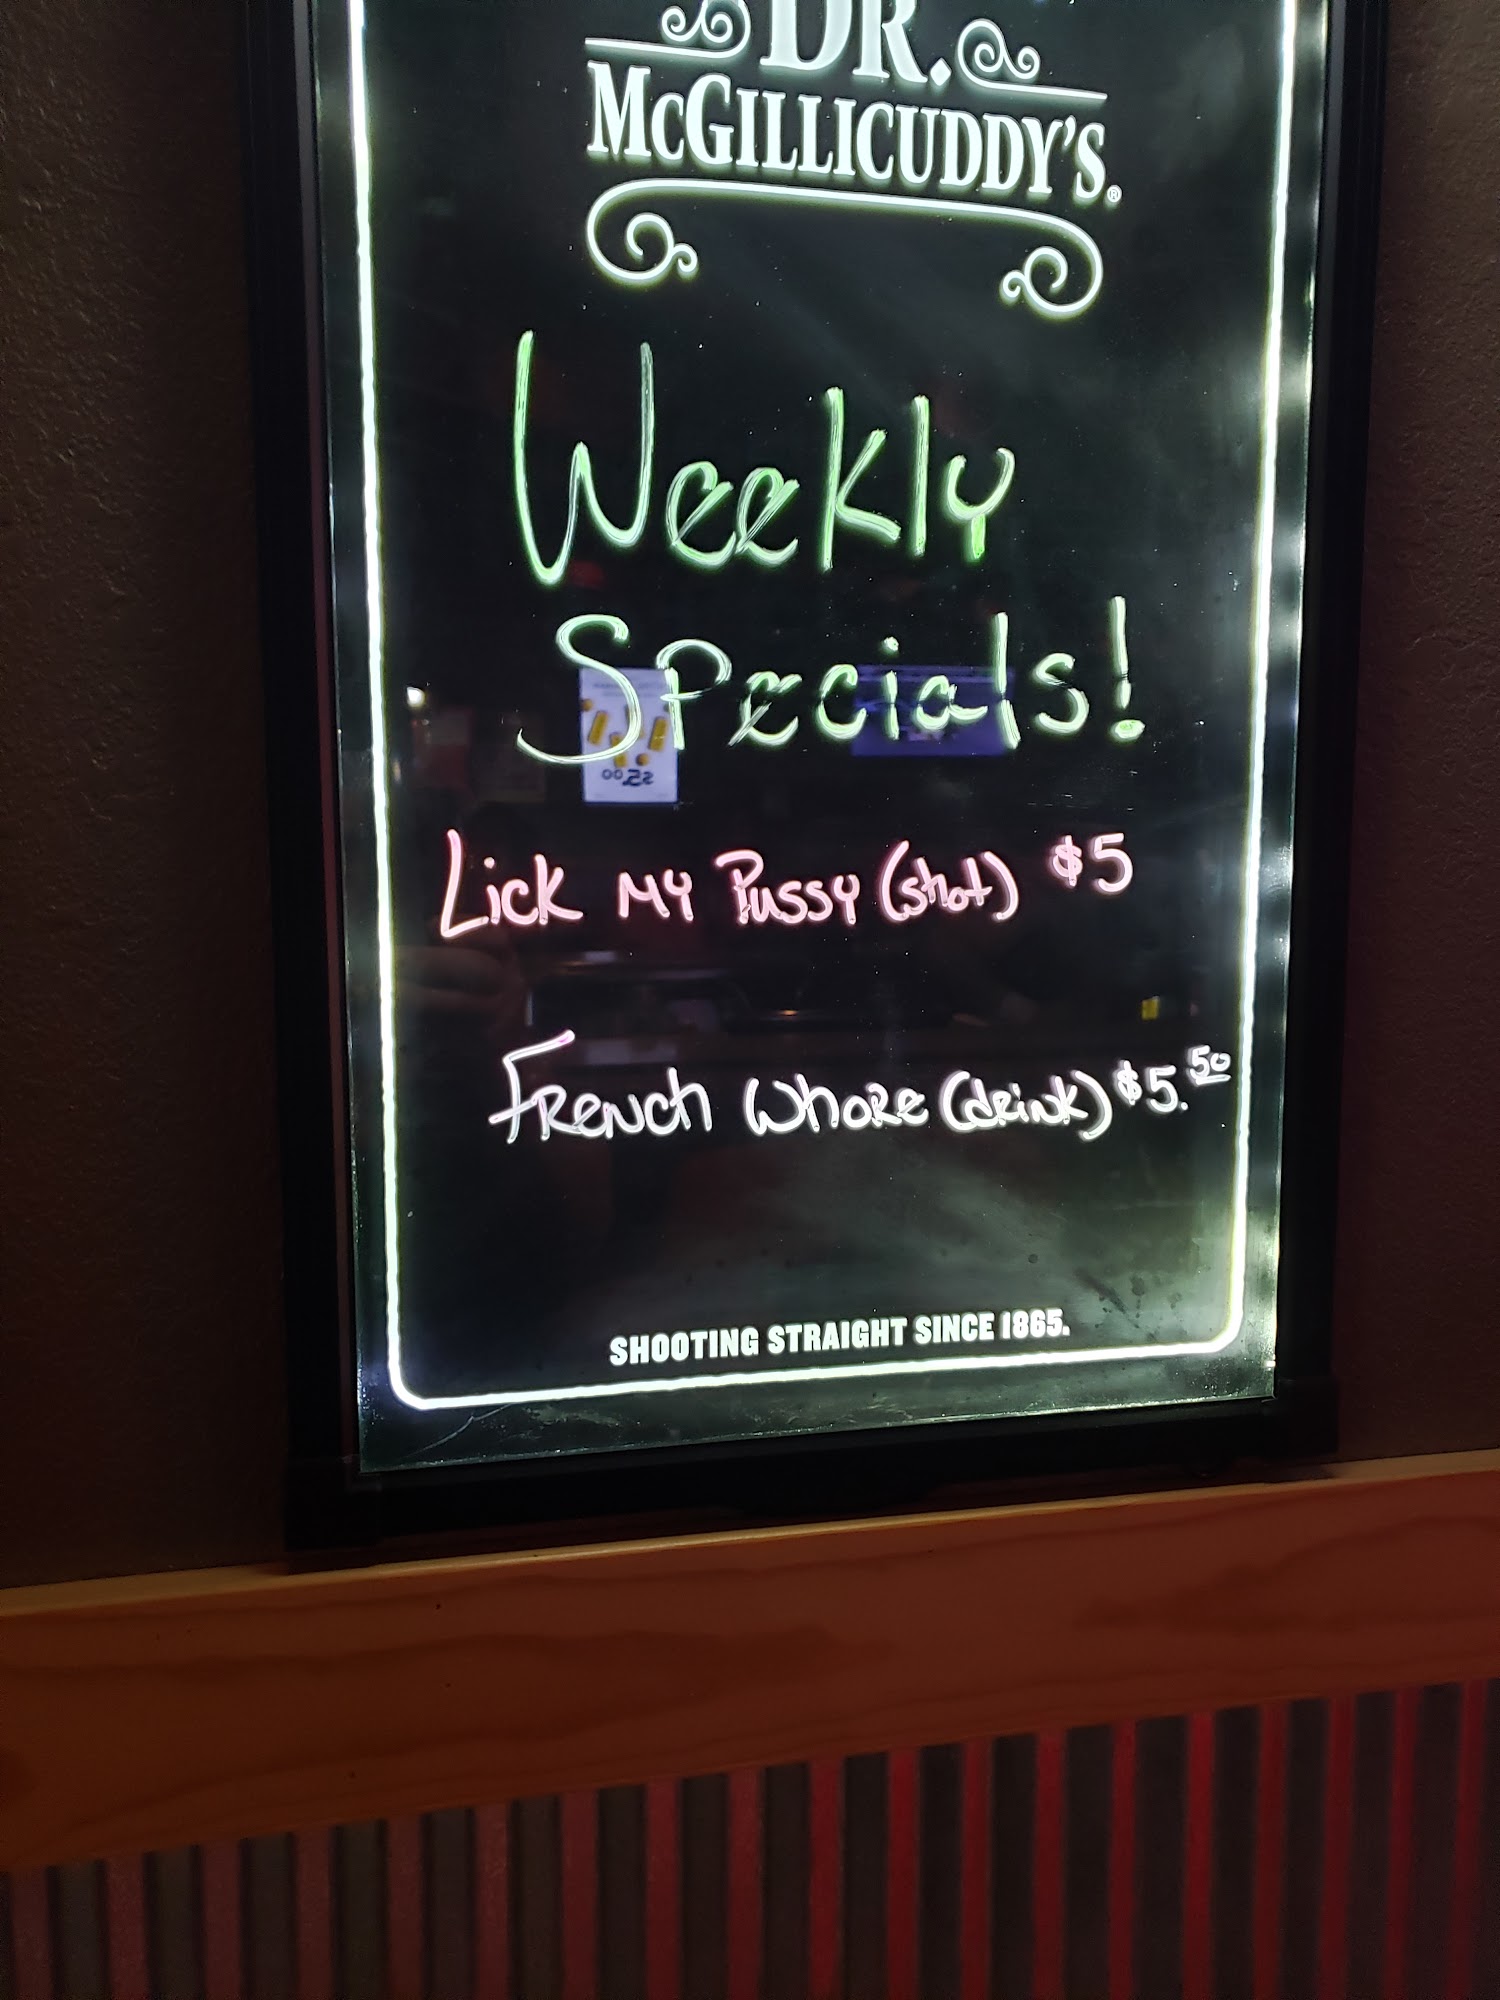 DR.
McGILLICUDDY'S®
Weekly
Specials!
Lick my Pussy (shot) $5
French Whore (drink) $5.50
SHOOTING STRAIGHT SINCE 1865.